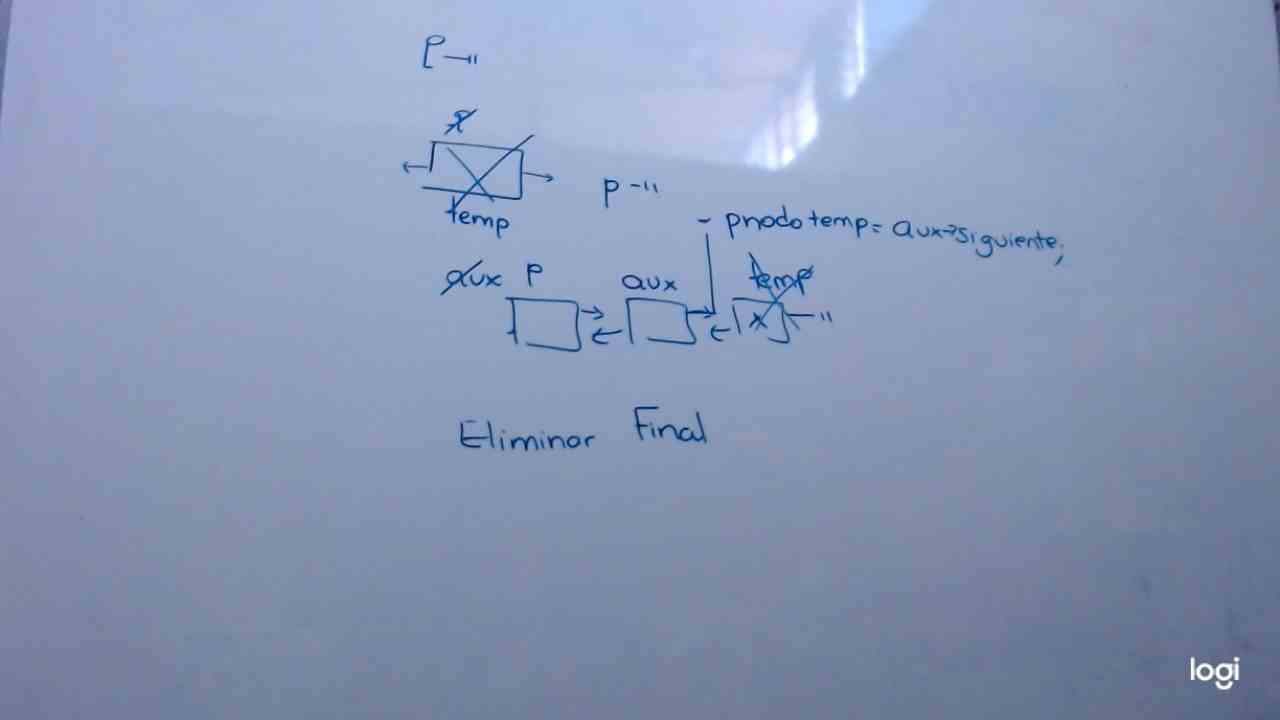 P
P
temp
P
- pnodo temp = aux→siguiente;
aux P aux temp
x
Eliminar Final
logi